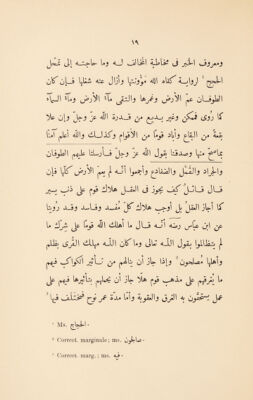 ١٩
ومعروف الخبر فى مخاطبة المخالف له وما حاجته إلى تمحّل
الحجيج¹ لرواية كفاه الله مؤونتها وأزال عنه شغلها فإن كان
الطوفان عمّ الأرض وغمرها والتقى ماء الأرض وماء السماء
كما رُوى فممكن وغير بديع من قدرة الله عزّ وجلّ وإن علا
بقعة من البقاع وأباد قومًا من الأقوام وكذلك والله أعلم آمنّا
بما صحّ منها وصدقنا بقول الله عزّ وجلّ فأرسلنا عليهم الطوفان
والجراد والقُمَّل والضفادع وأجمعوا أنّه لم يعمّ الأرض كلّها فإن
قال قائل كيف يجوز فى العقل هلاك قوم على ذنب يسير
كما أجاز العقل بل أوجب هلاك كلّ مُفسد وفاسد وقد رُوينا
عن ابن عباس رضَه أنّه قال ما أهلك الله قومًا على شِرْك ما
لم يتظالموا بقول الله تعالى وما كان الله مهلك القُرى بظلم
وأهلها مُصلحون² وإذا جاز أن ينالهم من تأثير الكواكب فيهم
ما يُغرقهم على مذهب قوم هلّا جاز أن يحملهم بتأثيرها فيهم على
عمل يستحقّون به الغرق والعقوبة وأمّا مدّة عمر نوح فمختلف فيها³
¹ Ms. الحجاج.
² Correct. marginale; ms. صالحون.
³ Correct. marg.; ms. فيه.